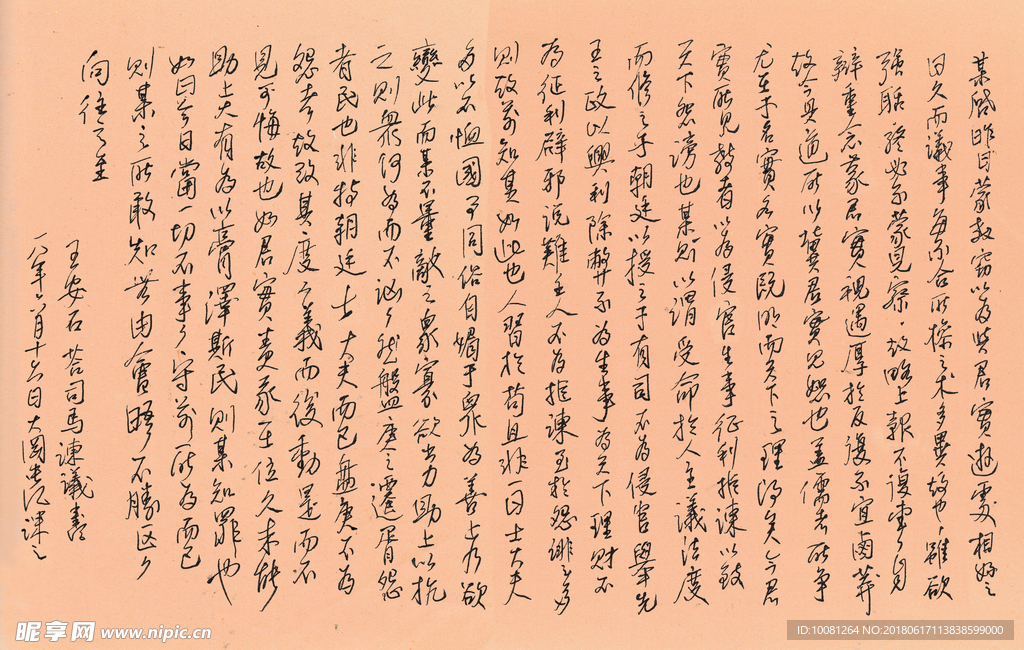 某啟昨日蒙教竊以為與君實遊處相好之
日久而議事每不合所操之术多異故也雖欲
強聒終必不蒙見察故略上報不復一一自
辯重念蒙君實視遇厚於反覆不宜鹵莽
故今具道所以冀君實見恕也盖儒者所爭
尤在于名實名實既明而天下之理得矣今君
實所見教者以為侵官生事征利拒諫以致
天下怨謗也某則以謂受命於人主議法度
而修之于朝廷以授之于有司不為侵官舉先
王之政以興利除弊不為生事為天下理財不
為征利辟邪說難壬人不為拒諫至於怨誹之多
則故前知其如此也人習於苟且非一日士大夫
多以不恤國事同俗自媚于眾為善上乃欲
變此而某不量敵之眾寡欲出力助上以抗
之則衆何為而不汹汹然盤庚之遷胥怨
者民也非特朝廷士大夫而已盤庚不為
怨者故改其度度義而後動是而不
見可悔故也如君實責我以在位久未能
助上大有為以膏澤斯民則某知罪也
如曰今日當一切不事事守前所為而已
則某之所敢知無由會晤不勝区区
向往之至
王安石答司馬諫議書
一八年六月十六日大國
昵享网 www.nipic.cn
ID:10081264 NO:20180617113838599000